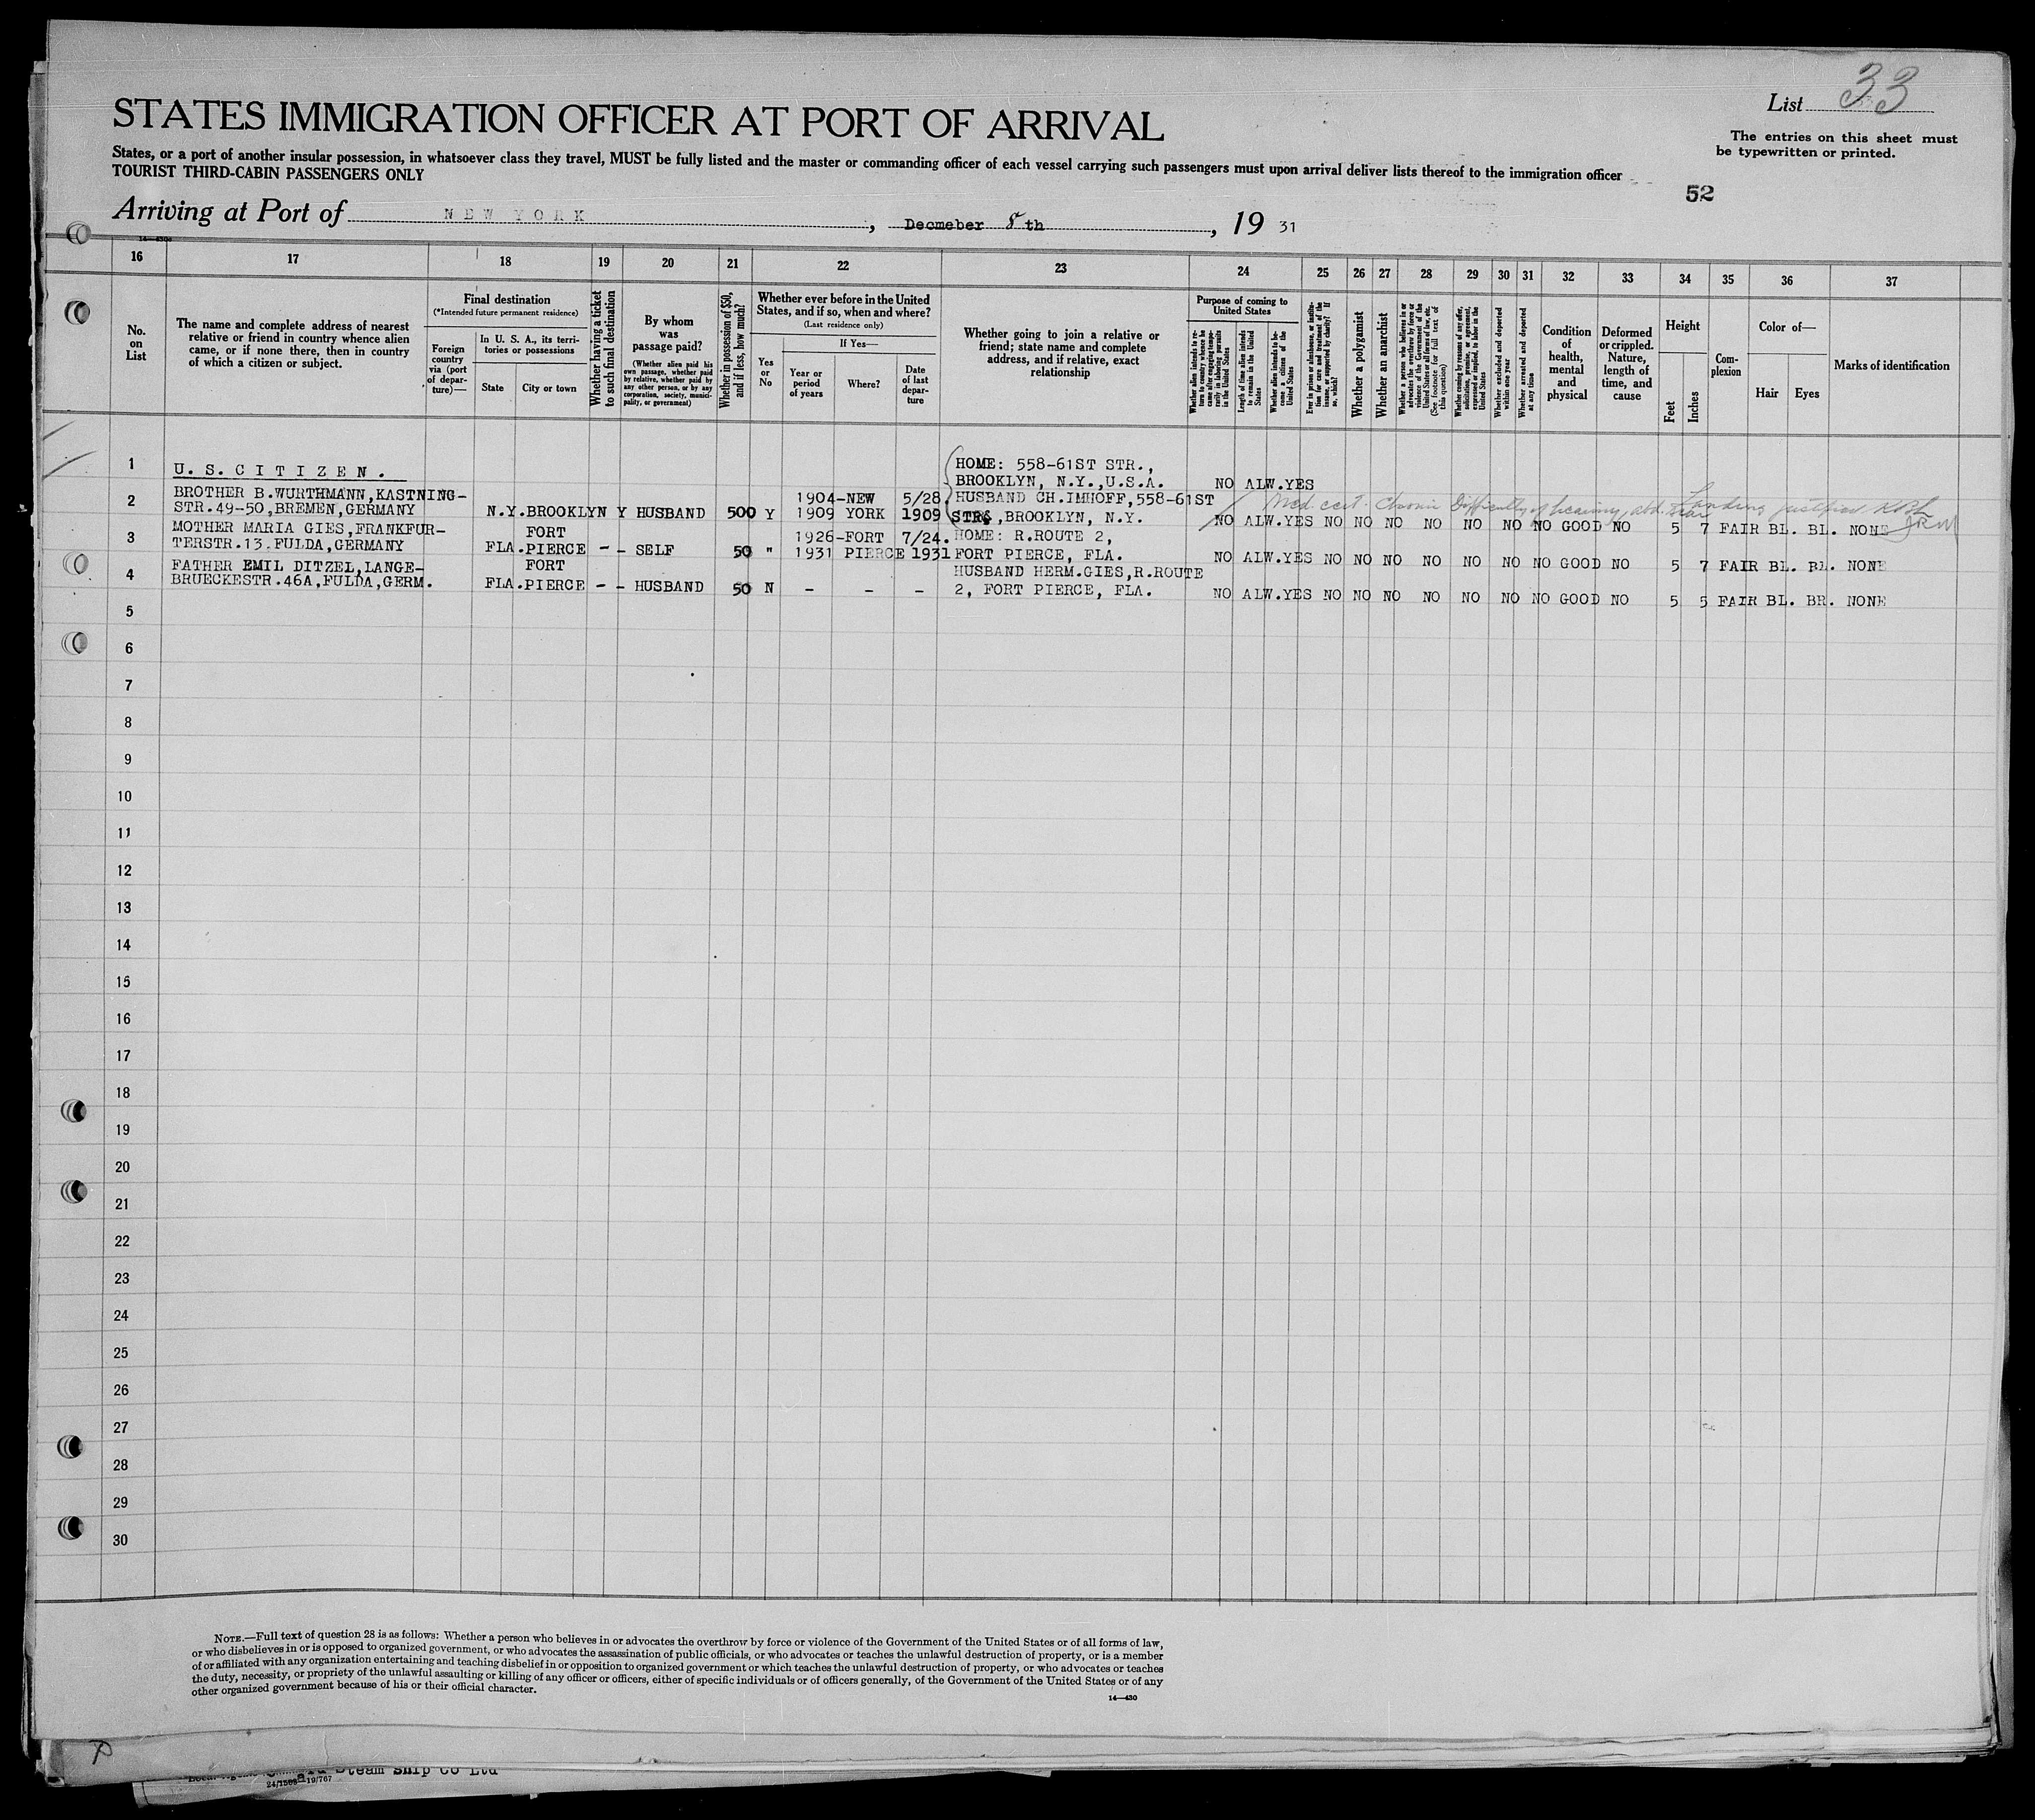 List 33
STATES IMMIGRATION OFFICER AT PORT OF ARRIVAL
The entries on this sheet must
be typewritten or printed.
States, or a port of another insular possession, in whatsoever class they travel, MUST be fully listed and the master or commanding officer of each vessel carrying such passengers must upon arrival deliver lists thereof to the immigration officer
TOURIST THIRD-CABIN PASSENGERS ONLY
52
Arriving at Port of NEW YORK, Decmeber 8 th, 19 31
16 17 18 19 20 21 22 23 24 25 26 27 28 29 30 31 32 33 34 35 36 37
No.
on
List
The name and complete address of nearest
relative or friend in country whence alien
came, or if none there, then in country
of which a citizen or subject.
Final destination
(*Intended future permanent residence)
Foreign
country
via (port
of depar-
ture)—
In U. S. A., its terri-
tories or possessions
State
City or town
Whether having a ticket
to such final destination
By whom
was
passage paid?
(Whether alien paid his
own passage, whether paid
by relative, whether paid by
any other person, or by any
corporation, society, munici-
pality, or government)
Whether in possession of $50,
and if less, how much?
Whether ever before in the United
States, and if so, when and where?
(Last residence only)
Yes
or
No
If Yes—
Year or
period
of years
Where?
Date
of last
depar-
ture
Whether going to join a relative or
friend; state name and complete
address, and if relative, exact
relationship
Purpose of coming to
United States
Whether alien intends to re-
turn to country whence he
came after engaging tempo-
rarily in laboring pursuits
in the United States
Length of time alien intends
to remain in the United
States
Whether alien intends to be-
come a citizen of the
United States
Ever in prison or almshouse, or institu-
tion for care and treatment of the
insane, or supported by charity? If
so, which?
Whether a polygamist
Whether an anarchist
Whether a person who believes in or
advocates the overthrow by force or
violence of the Government of the
United States or all forms of law, etc.
(See footnote for full text of
this question)
Whether coming by reason of any offer,
solicitation, promise, or agreement,
expressed or implied, to labor in the
United States
Whether excluded and deported
within one year
Whether arrested and deported
at any time
Condition
of
health,
mental
and
physical
Deformed
or crippled.
Nature,
length of
time, and
cause
Height
Feet
Inches
Com-
plexion
Color of—
Hair
Eyes
Marks of identification
1 U. S. C I T I Z E N .
HOME: 558-61ST STR.,
BROOKLYN, N.Y.,U.S.A. NO ALW.YES
Med cert. Chronic Difficulty of hearing, abd. scar Landing justified
2 BROTHER B.WURTHMANN,KASTNING- 1904-NEW 5/28. HUSBAND CH.IMHOFF,558-61ST
STR.49-50,BREMEN,GERMANY N.Y.BROOKLYN Y HUSBAND 500 Y 1909 YORK 1909 STR.,BROOKLYN, N.Y. NO ALW.YES NO NO NO NO NO NO NO GOOD NO 5 7 FAIR BL. BL. NONE
3 MOTHER MARIA GIES,FRANKFUR- FORT 1926-FORT 7/24. HOME: R.ROUTE 2,
TERSTR.13.FULDA,GERMANY FLA.PIERCE - - SELF 50 " 1931 PIERCE 1931 FORT PIERCE, FLA. NO ALW.YES NO NO NO NO NO NO NO GOOD NO 5 7 FAIR BL. BL. NONE
4 FATHER EMIL DITZEL,LANGE- FORT HUSBAND HERM.GIES,R.ROUTE
BRUECKESTR.46A,FULDA,GERM. FLA.PIERCE - - HUSBAND 50 N - - - 2, FORT PIERCE, FLA. NO ALW.YES NO NO NO NO NO NO NO GOOD NO 5 5 FAIR BL. BR. NONE
5
6
7
8
9
10
11
12
13
14
15
16
17
18
19
20
21
22
23
24
25
26
27
28
29
30
NOTE.—Full text of question 28 is as follows: Whether a person who believes in or advocates the overthrow by force or violence of the Government of the United States or of all forms of law,
or who disbelieves in or is opposed to organized government, or who advocates the assassination of public officials, or who advocates or teaches the unlawful destruction of property, or is a member
of or affiliated with any organization entertaining and teaching disbelief in or opposition to organized government or which teaches the unlawful destruction of property, or who advocates or teaches
the duty, necessity, or propriety of the unlawful assaulting or killing of any officer or officers, either of specific individuals or of officers generally, of the Government of the United States or of any
other organized government because of his or their official character.
14—430
Steam Ship Co Ltd
19/767